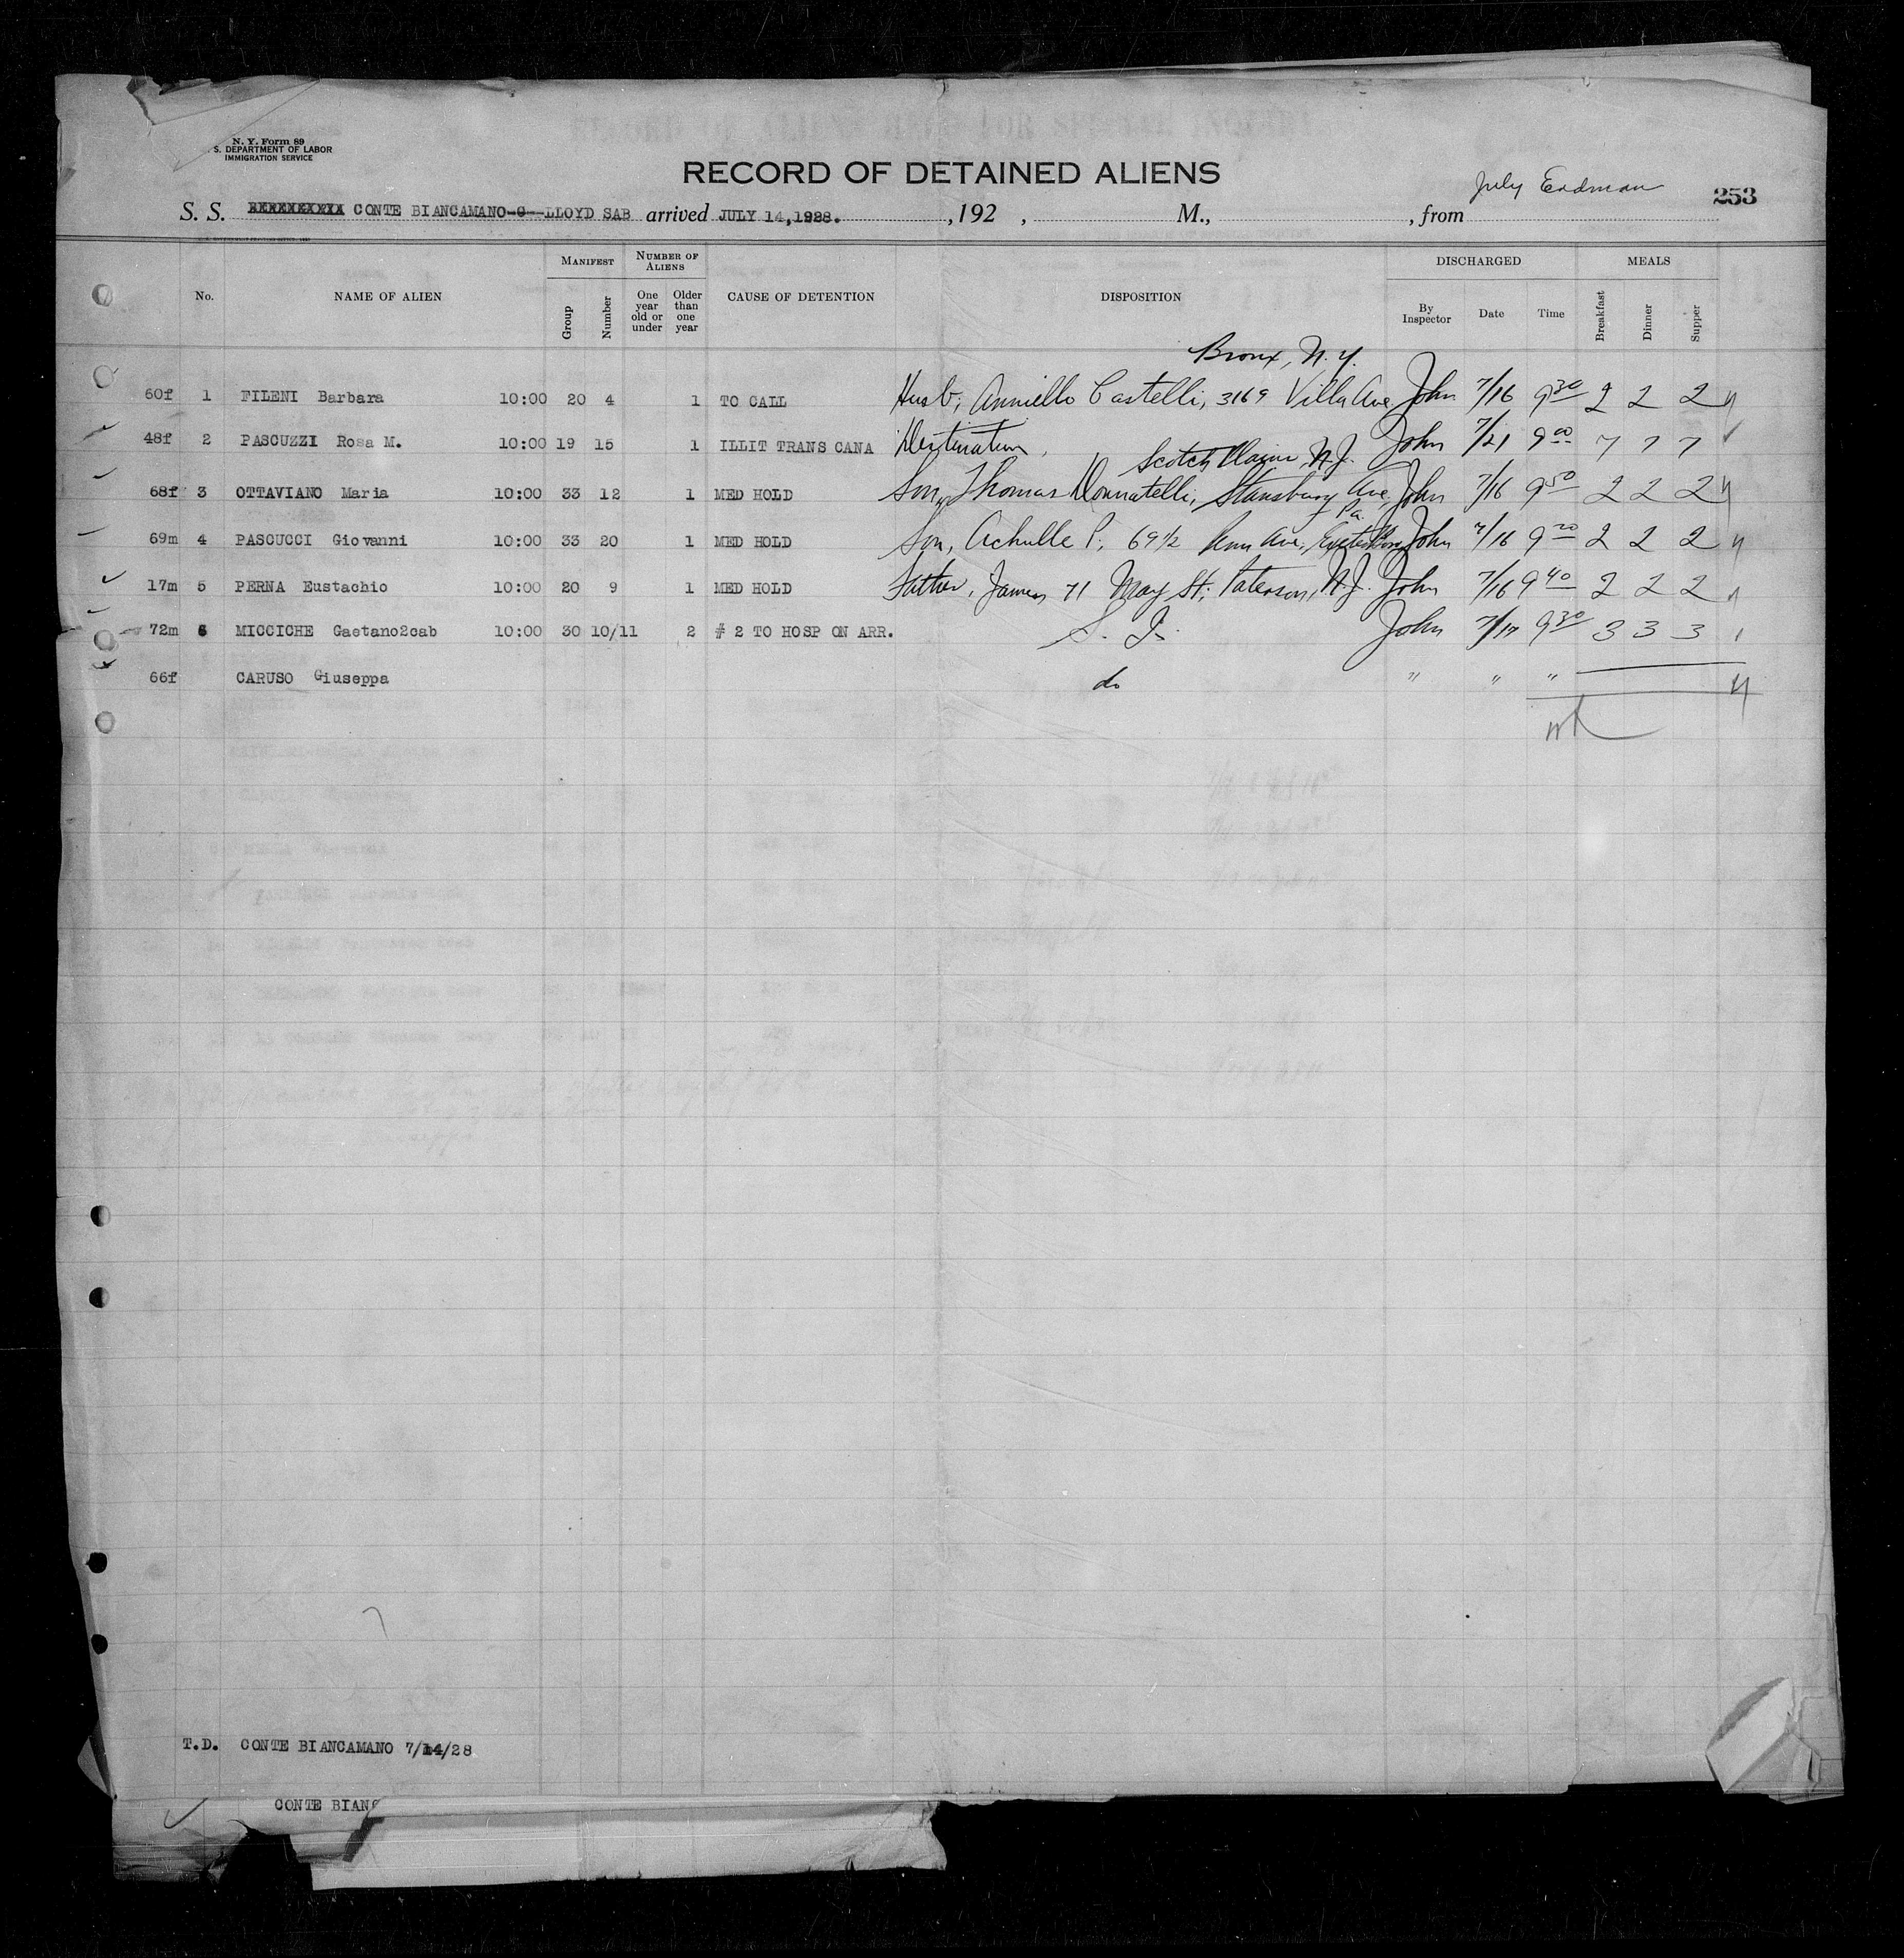 N. Y. Form 89
S. DEPARTMENT OF LABOR
IMMIGRATION SERVICE
RECORD OF DETAINED ALIENS
253
S. S. CONTE BIANCAMANO-C--LLOYD SAB arrived JULY 14,1928. , 192 , M., , from
No.
NAME OF ALIEN
MANIFEST
Group
Number
NUMBER OF ALIENS
One year old or under
Older than one year
CAUSE OF DETENTION
DISPOSITION
DISCHARGED
By Inspector
Date
Time
MEALS
Breakfast
Dinner
Supper
Bronx, N. Y.
60f 1 FILENI Barbara 10:00 20 4 1 TO CALL Husb; Anniello Castelli, 3169 Villa Ave John 7/16 9 30 2 2 2
48f 2 PASCUZZI Rosa M. 10:00 19 15 1 ILLIT TRANS CANA Destination, John 7/21 9 00 7 7 7
Scotch Plains, N.J.
68f 3 OTTAVIANO Maria 10:00 33 12 1 MED HOLD Son, Thomas Donnatelli, Stansbury Ave, John 7/16 9 50 2 2 2
Pa.
69m 4 PASCUCCI Giovanni 10:00 33 20 1 MED HOLD Son, Achille P., 69 1/2 Penn Ave, John 7/16 9 20 2 2 2
17m 5 PERNA Eustachio 10:00 20 9 1 MED HOLD Father, James 71 May St; Paterson, N.J. John 7/16 9 40 2 2 2
72m 6 MICCICHE Gaetano2cab 10:00 30 10/11 2 # 2 TO HOSP ON ARR. S. I. John 7/17 9 30 3 3 3
66f CARUSO Giuseppa do " " "
T.D. CONTE BIANCAMANO 7/14/28
CONTE BIANC